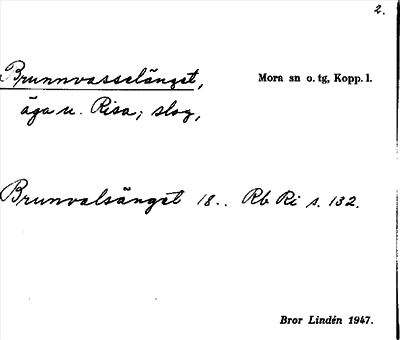 2.
Brunnvasselänget, Mora sn o. tg, Kopp. l.
äga u. Risa; slog,
Brunvalsänget 18.. Rb Ri s. 132.
Bror Lindén 1947.